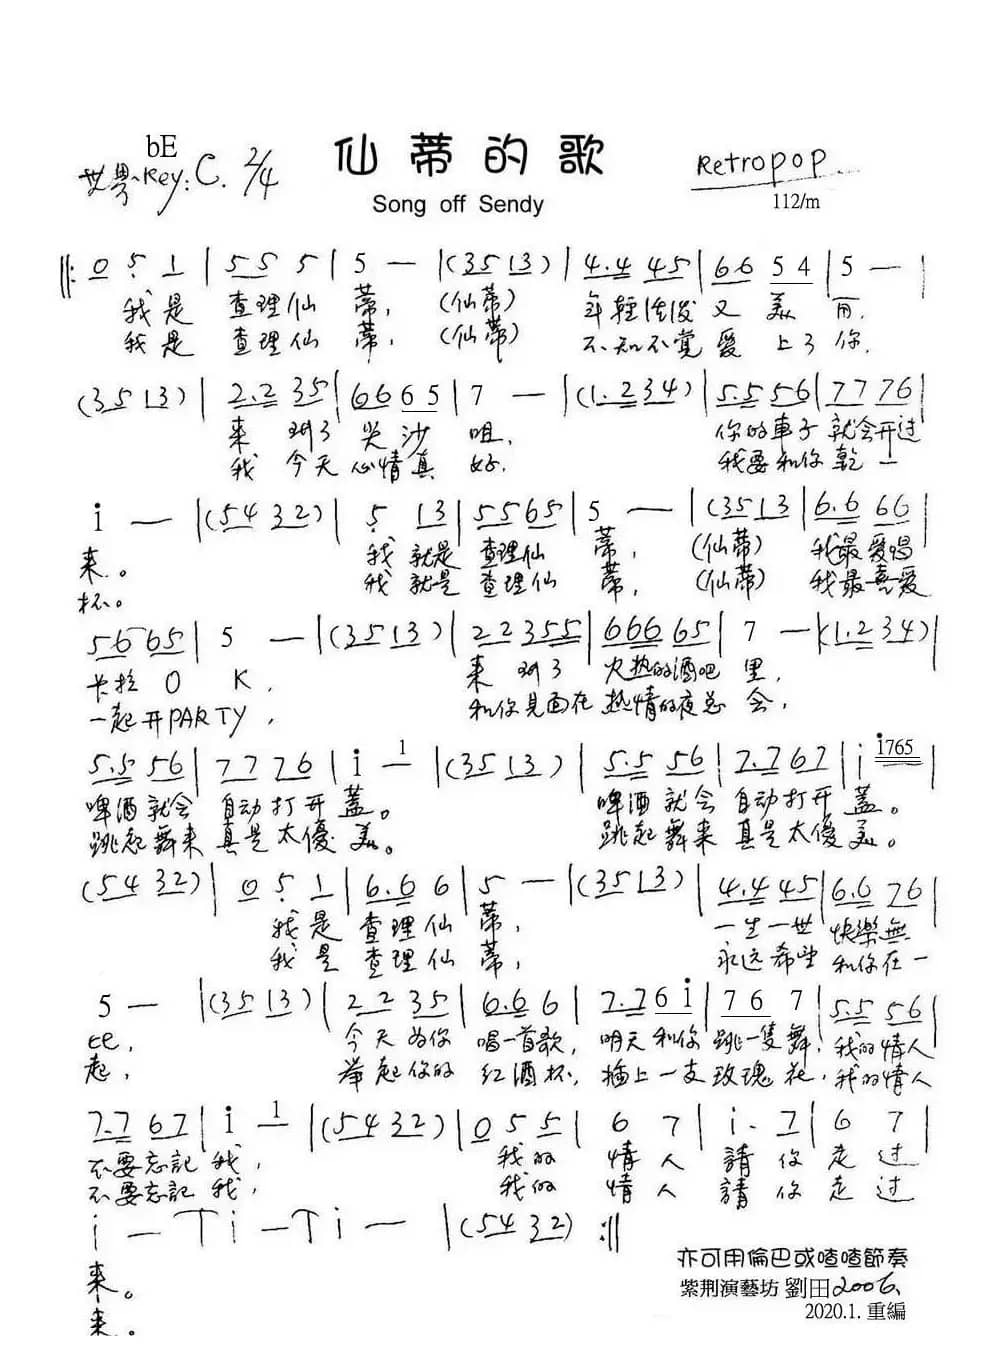 bE
仙蒂的歌
Key: C. 2/4
Retropop
Song off Sendy
112/m
‖: 0 5 1 | 5 5 5 | 5 — | (3 5 1 3) | 4. 4 4 5 | 6 6 5 4 | 5 — |
我是 查理仙 蒂, (仙蒂) 年輕活潑又美丽.
我是 查理仙 蒂, (仙蒂) 不知不覺愛上了你.
(3 5 1 3) | 2. 2 3 5 | 6 6 6 5 | 7 — | (1. 2 3 4) | 5. 5 5 6 | 7 7 7 6 |
来 到了 尖沙咀, 你的車子就会开过
我 今天 心情真好. 我要和你乾一
i — | (5 4 3 2) | 5 1 3 | 5 5 6 5 | 5 — | (3 5 1 3) | 6. 6 6 6 |
来。 我就是 查理仙 蒂, (仙蒂) 我最爱唱
杯。 我就是 查理仙 蒂, (仙蒂) 我最喜爱
5 6 6 5 | 5 — | (3 5 1 3) | 2 2 3 5 5 | 6 6 6 6 5 | 7 — | (1. 2 3 4) |
卡拉 O K, 来 到了 火热的酒吧里,
一起开PARTY, 和你見面在 热情的夜总会,
5. 5 5 6 | 7 7 7 6 | i 1 — | (3 5 1 3) | 5. 5 5 6 | 7. 7 6 7 | i i765 |
啤酒就会 自动打开蓋。 啤酒就会 自动打开蓋。
跳起舞来 真是太優美。 跳起舞来 真是太優美。
(5 4 3 2) | 0 5 1 | 6. 6 6 | 5 — | (3 5 1 3) | 4. 4 4 5 | 6. 6 7 6 |
我是 查理仙 蒂, 一生一世 快樂無
我是 查理仙 蒂, 永远希望 和你在一
5 — | (3 5 1 3) | 2 2 3 5 | 6. 6 6 | 7. 7 6 i | 7 6 7 | 5. 5 5 6 |
比, 今天为你 唱一首歌, 明天和你 跳一隻舞, 我的情人
起, 举起你的 红酒杯, 插上一支 玫瑰花, 我的情人
7. 7 6 7 | i 1 — | (5 4 3 2) | 0 5 5 | 6 7 | i. 7 | 6 7 |
不要忘記我, 我的 情人 請你 走过
不要忘記我, 我的 情人 請你 走过
i — | i — | i — | (5 4 3 2) :‖
来。
来。
亦可用倫巴或喳喳節奏
紫荆演藝坊 劉田2006.
2020.1. 重編